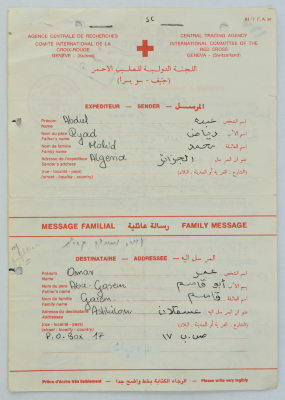 AGENCE CENTRALE DE RECHERCHES
COMITÉ INTERNATIONAL DE LA
CROIX-ROUGE
GENÈVE - (Suisse)
CENTRAL TRACING AGENCY
INTERNATIONAL COMMITTEE OF THE
RED CROSS
GENEVA - (Switzerland)
اللجنة الدولية للصليب الأحمر
(جنيف - سويسرا)
EXPEDITEUR - SENDER - المرسل
Prénom Abdul عبده اسم الشخص
Name
Nom du père Ryad رياض اسم الأب
Father's name
Nom de famille Mohid محمد اسم العائلة
Family name
Adresse de l'expéditeur Algeria الجزائر عنوان المرسل
Sender's address
(rue - localité - pays)
(street - locality - country)
MESSAGE FAMILIAL رسالة عائلية FAMILY MESSAGE
DESTINATAIRE - ADDRESSEE - المرسل اليه
Prénom Omar عمر اسم الشخص
Name
Nom du père Abu-Gasem أبو قاسم اسم الأب
Father's name
Nom de famille Gasem قاسم اسم العائلة
Family name
Adresse du destinataire Ashkilon عسقلان عنوان المرسل اليه
Addressee
(rue - localité - pays)
(street - locality - country)
P.O. Box 17 ص.ب ١٧
Prière d'écrire très lisiblement - الرجاء الكتابة بخط واضح جداً - Please write very legibly